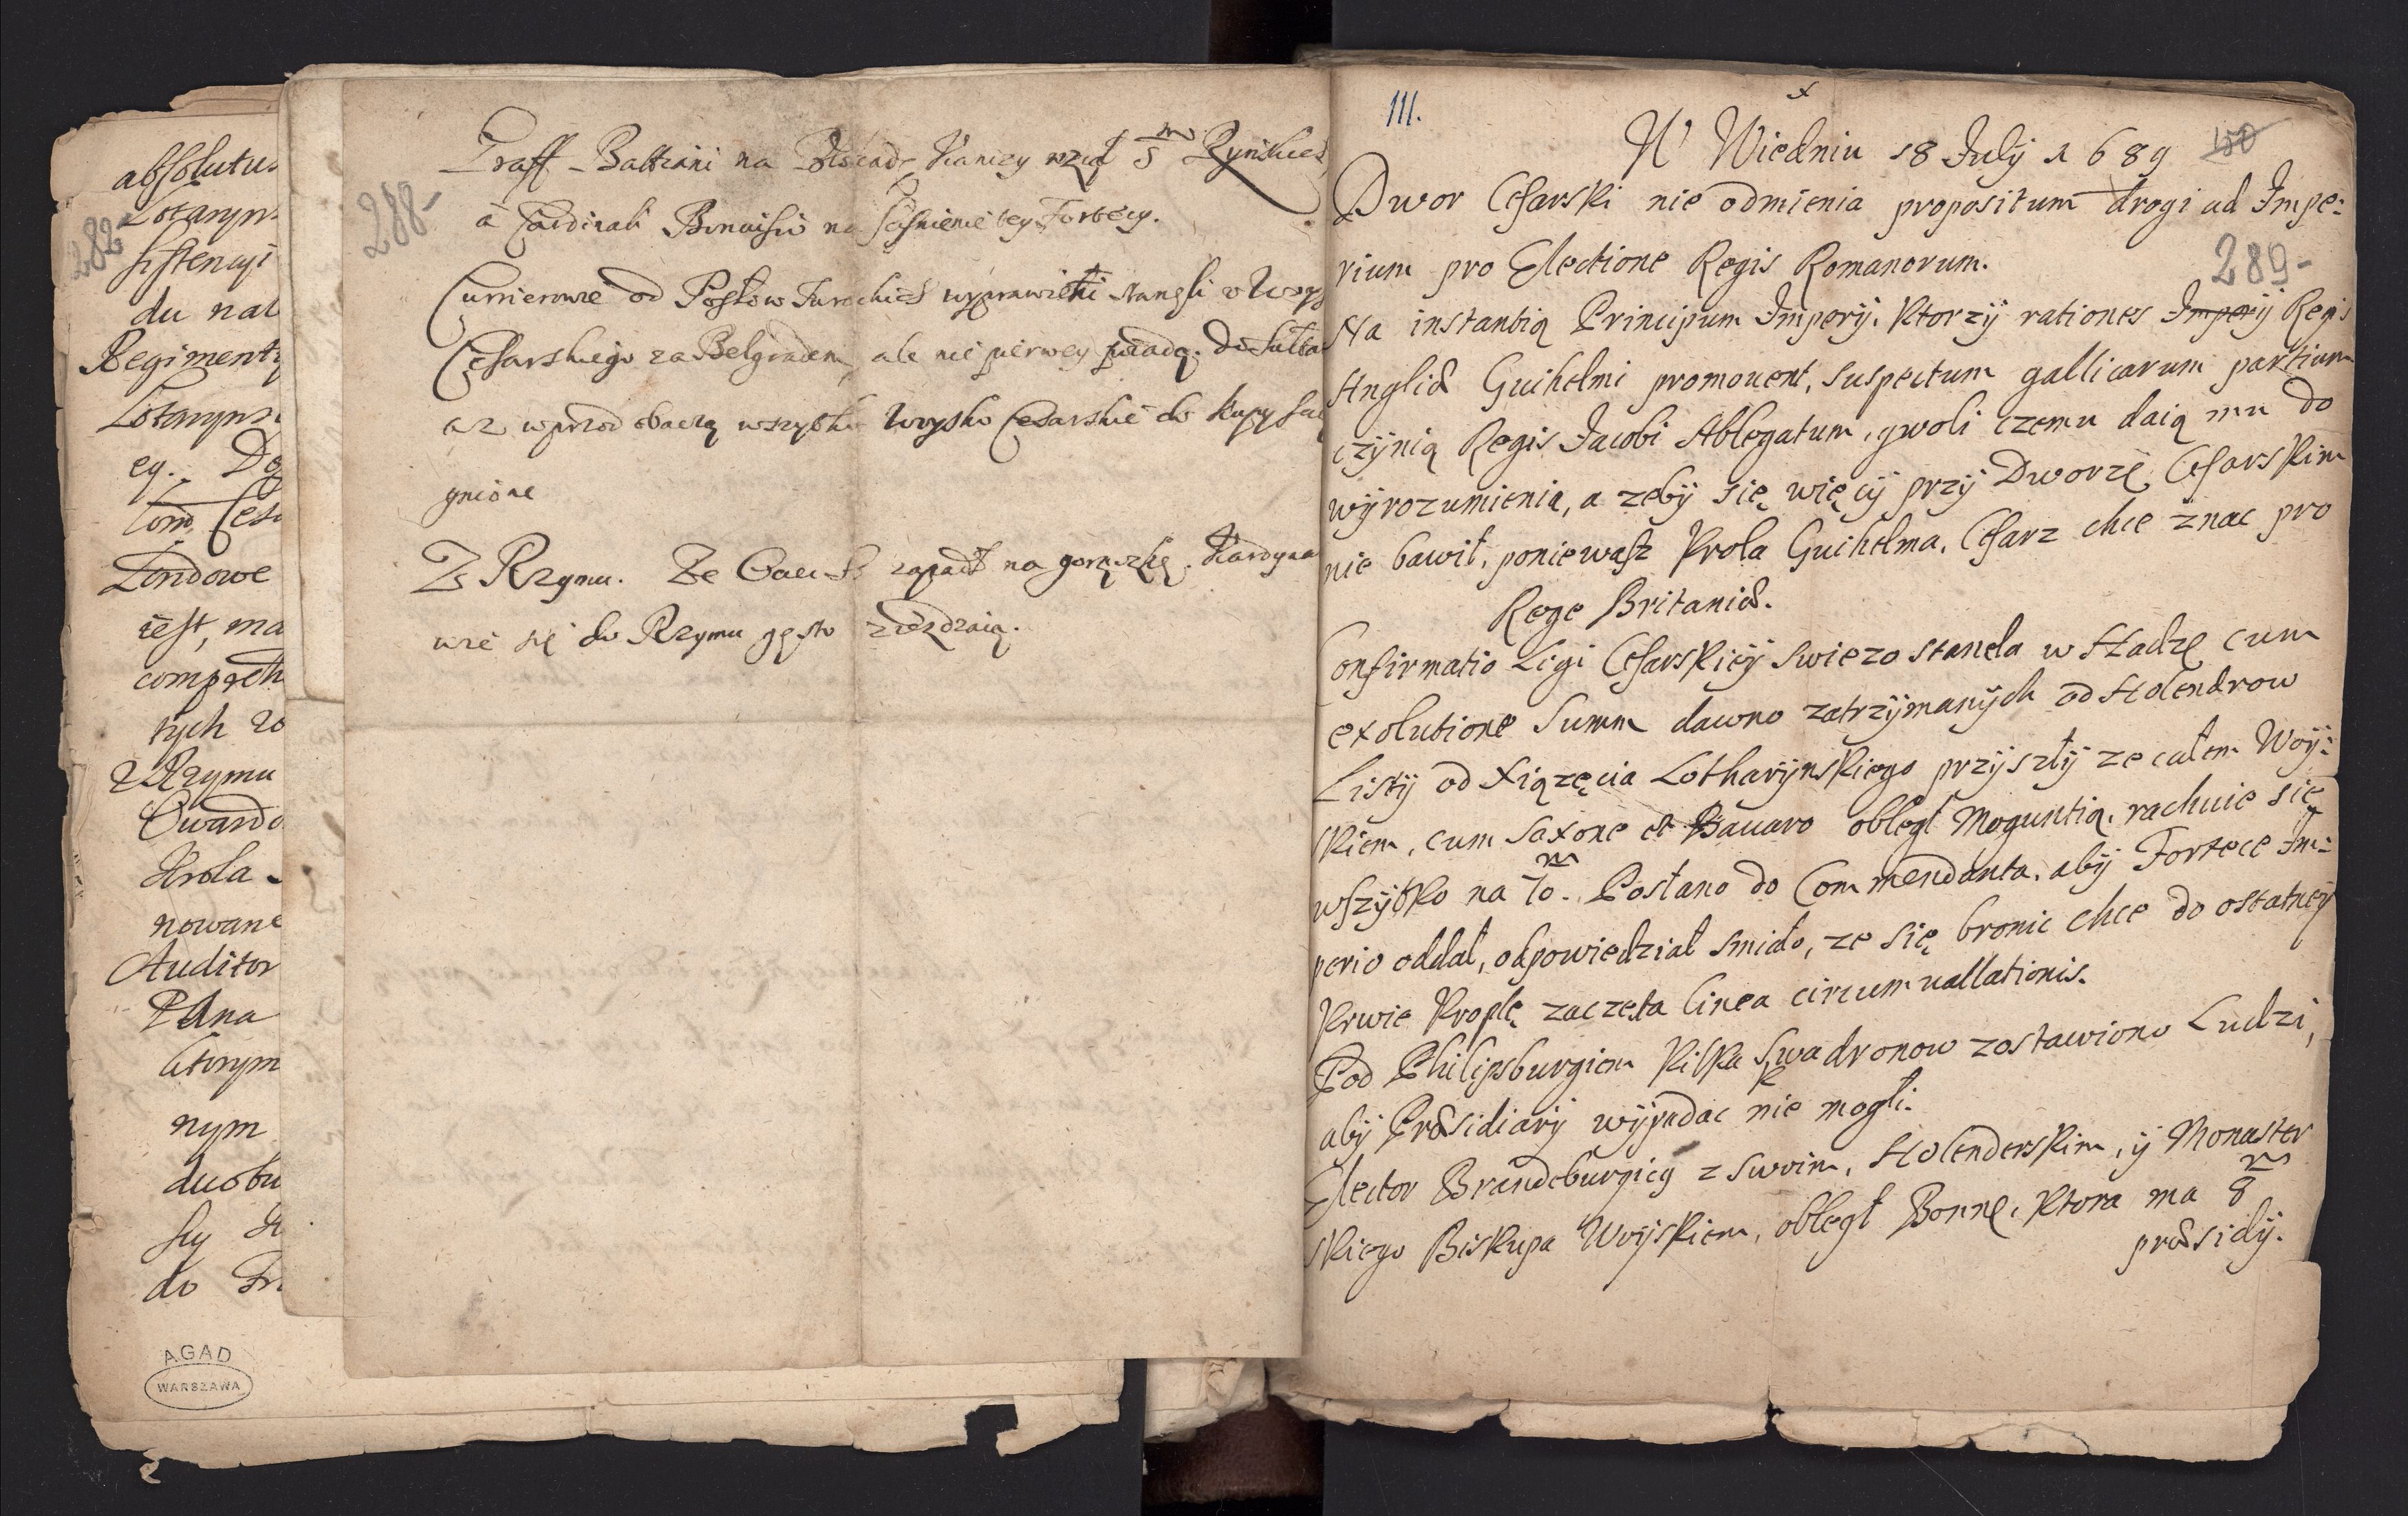 absolutus
Lotaryn
sistencyi
282
du nat
Regimenty
Lotaryns
eg. Do
Com Ces
Londowe
iest, ma
compreh
tych zo
z Rzymu
Krola
nowane
Auditor
Pana
ktorym
nym
duobu
do Fr
AGAD
WARSZAWA
288-
Graff Battiani na Kanizy wziął 5 m Rynskich
a Cardinali Bonuisio na tey Fortecy.
Curierowie od Posłow Tureckich wyprawieni stanęli v Woys
Cesarskiego za Belgradem, ale nie pierwey do Sułta
az wprzod obaczą wszytko Woysko Cesarskie do kupy
gnione
Z Rzymu. Ze zapadł na gorączkę. Kardyna
wie się do Rzymu gęsto ziezdzaią.
111.
W Wiedniu 18 July 1689
150
Dwor Cesarski nie odmienia propositum drogi ad Impe:
289-
rium pro Electione Regis Romanorum.
Na instantią Principum Imperij, ktorzy rationes Imperij Regis
Angliæ Guihelmi promouent, suspectum gallicarum partium
czynią Regis Jacobi Ablegatum, gwoli czemu daią mu do
wyrozumienia, a zeby się więcy przy Dworze Cesarskim
nie bawił, poniewasz Krola Guihelma, Cesarz chce znac pro
Rege Britaniæ.
Confirmatio Ligi Cesarskiey swiezo staneła w Hadze cum
exolutione Summ dawno zatrzymanych od Holendrow
Listy od Xiązęcia Lotharynskiego przyszły ze całem Woy:
skiem, cum Saxone et Bauaro obległ Moguntią, rachuie się
wszytko na 70 m. Posłano do Commendanta, aby Fortece Im:
perio oddał, odpowiedział smiało, ze się bronic chce do ostatney
krwie kroplę zaczęta linea circumuallationis.
Pod Philipsburgiem kilka Swadronow zostawiono Ludzi,
aby Præsidiarij wypadac nie mogli.
Elector Brandeburgicg z swoim, Holenderskim, y Monaster
skiego Biskupa Woyskiem, obległ Bonnę, ktora ma 8 m
præsidij.